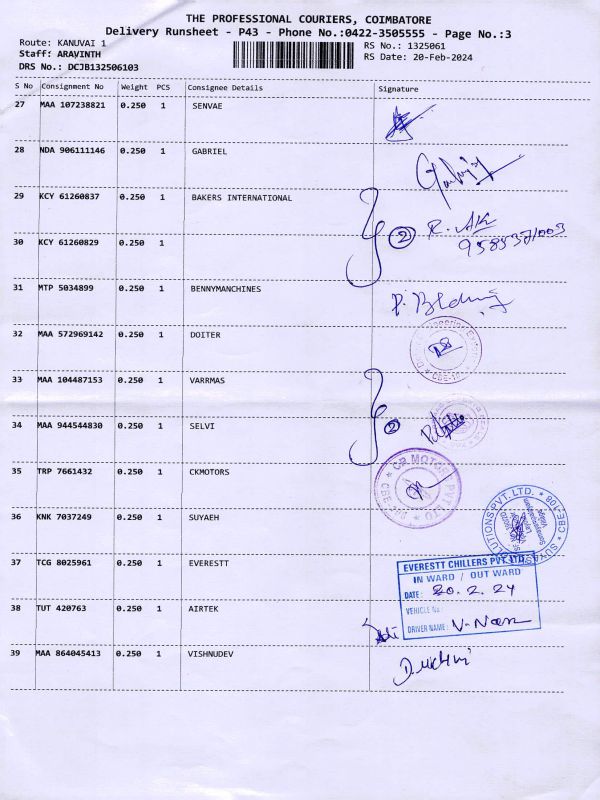 THE PROFESSIONAL COURIERS, COIMBATORE
Delivery Runsheet - P43 - Phone No.:0422-3505555 - Page No.:3
Route: KANUVAI 1
RS No.: 1325061
Staff: ARAVINTH
RS Date: 20-Feb-2024
DRS No.: DCJB132506103
S No Consignment No Weight PCS Consignee Details Signature
27 MAA 107238821 0.250 1 SENVAE
28 NDA 906111146 0.250 1 GABRIEL
29 KCY 61260837 0.250 1 BAKERS INTERNATIONAL
2
30 KCY 61260829 0.250 1
31 MTP 5034899 0.250 1 BENNYMANCHINES
32 MAA 572969142 0.250 1 DOITER
33 MAA 104487153 0.250 1 VARRMAS
34 MAA 944544830 0.250 1 SELVI
2
35 TRP 7661432 0.250 1 CKMOTORS
36 KNK 7037249 0.250 1 SUYAEH
37 TCG 8025961 0.250 1 EVERESTT
EVERESTT CHILLERS PVT. LTD.
IN WARD / OUT WARD
DATE: 20.2.24
38 TUT 420763 0.250 1 AIRTEK
VEHICLE No:
DRIVER NAME:
39 MAA 864045413 0.250 1 VISHNUDEV